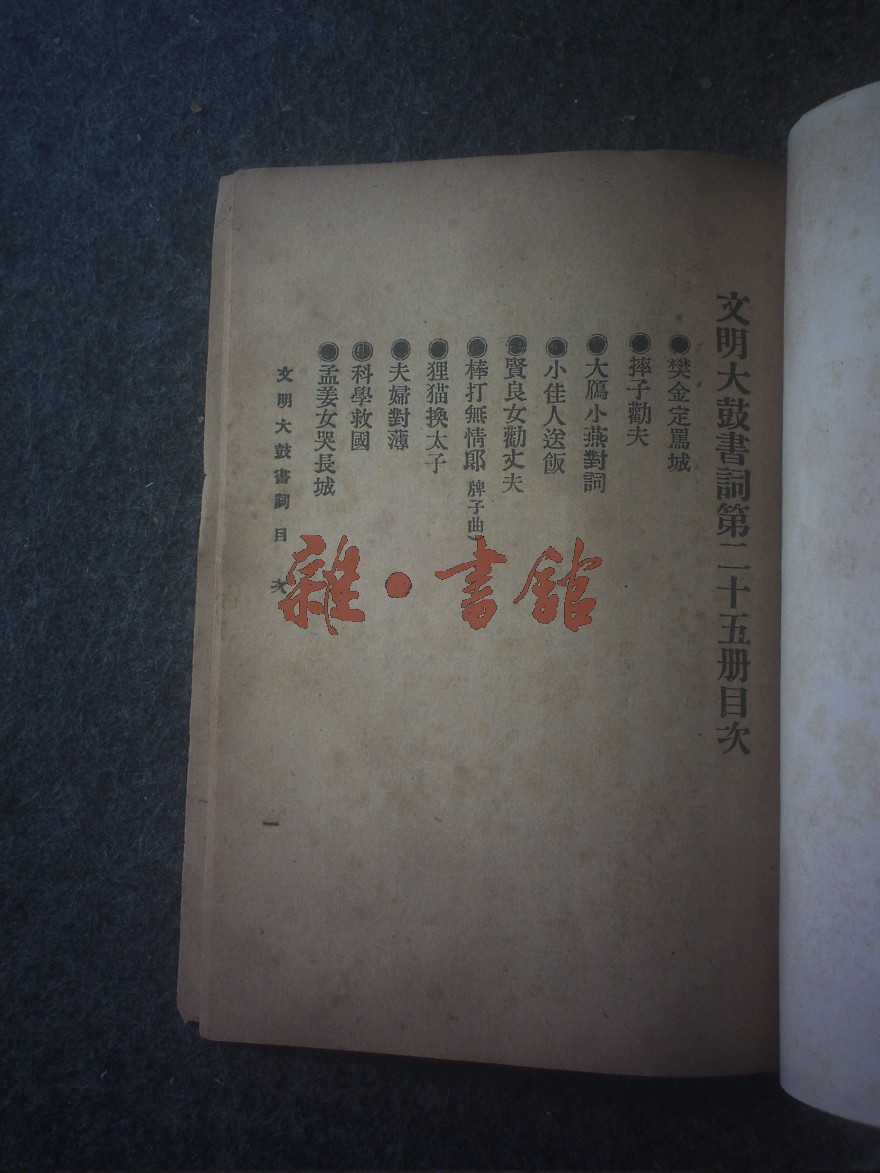 文明大鼓書詞第二十五册目次
●樊金定罵城
●摔子勸夫
●大鴈小燕對詞
●小佳人送飯
●賢良女勸丈夫
●棒打無情郎 牌子曲)
●狸猫換太子
●夫婦對薄
●科學救國
●孟姜女哭長城
文明大鼓書詞 目 次
一
雜·書館